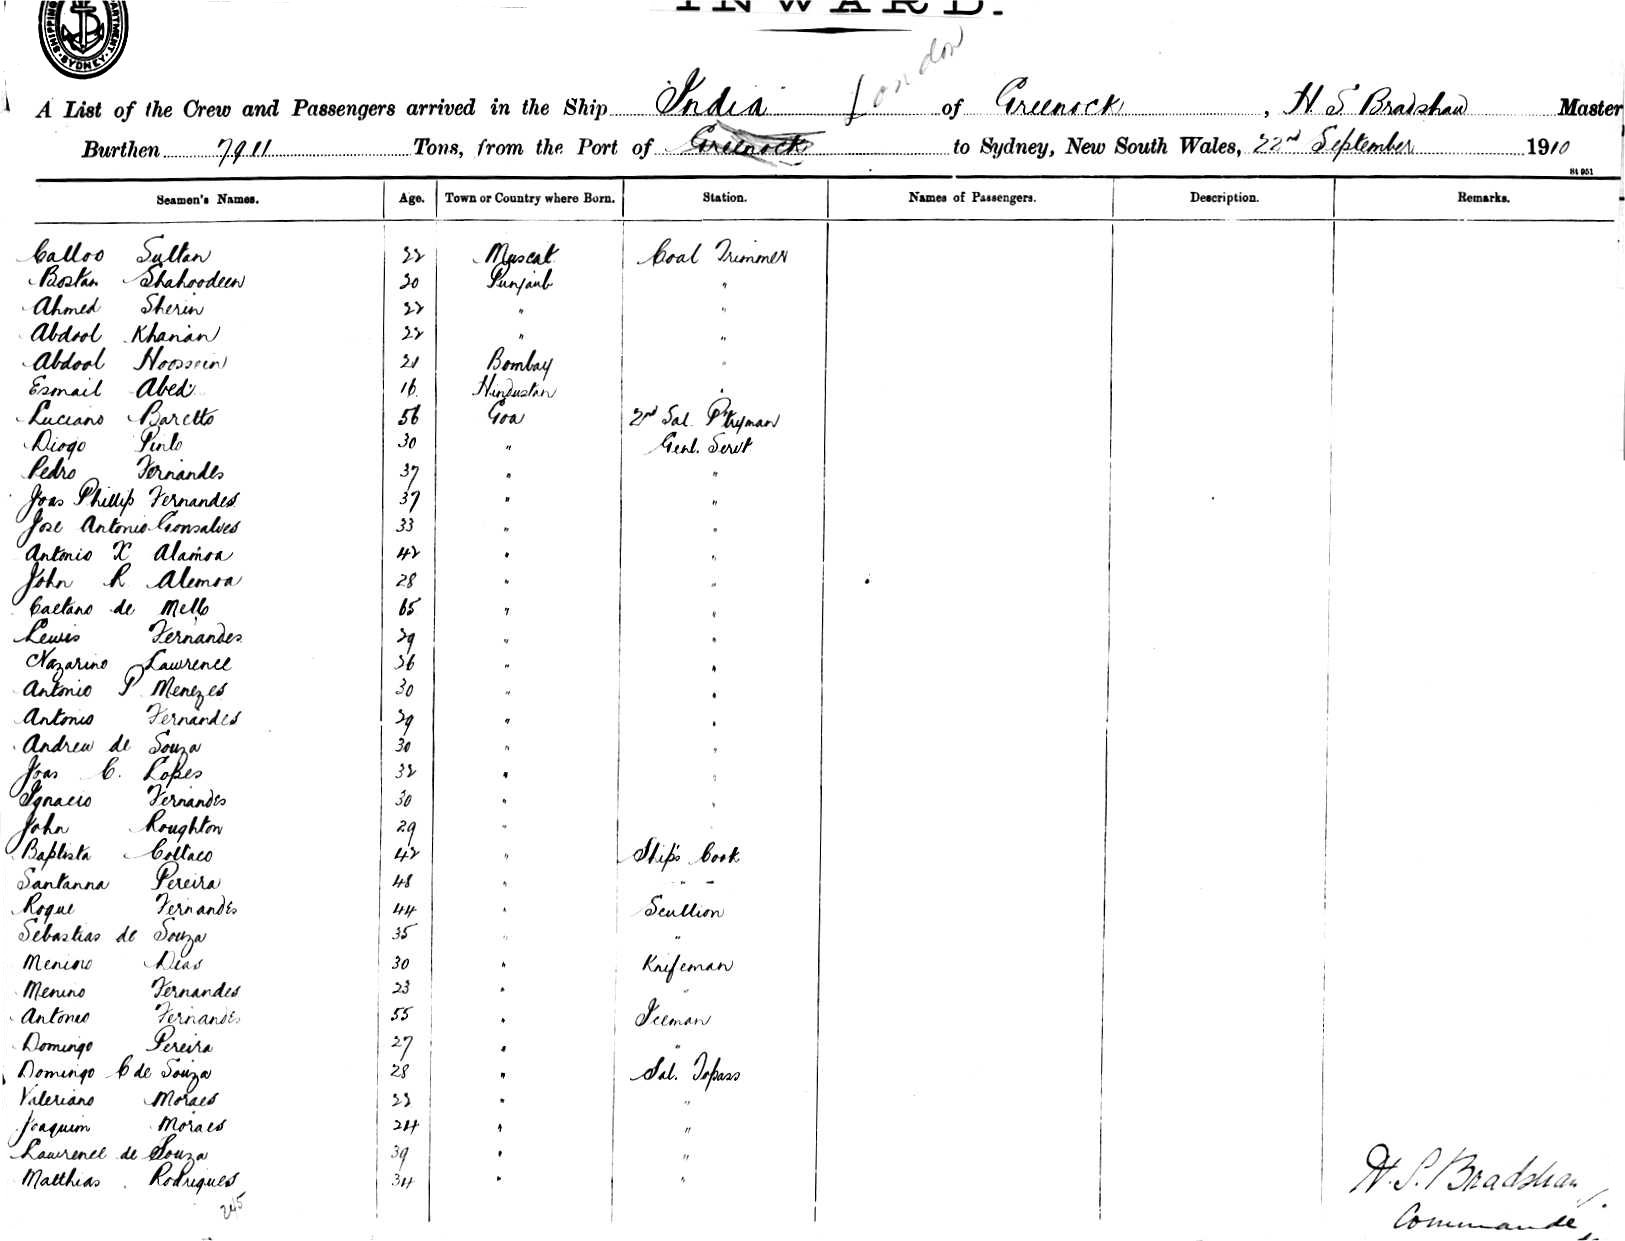 INWARD.
SHIPPING DEPARTMENT. SYDNEY.
London
A List of the Crew and Passengers arrived in the Ship India of Greenock, H S Bradshaw Master
Burthen 7911 Tons, from the Port of Greenock to Sydney, New South Wales, 22nd September 1910
St 951
Seamen's Names. Age. Town or Country where Born. Station. Names of Passengers. Description. Remarks.
Calloo Sultan 22 Muscat Coal Trimmer
Bostan Shahoodeen 30 Punjaub "
Ahmed Sherin 22 " "
Abdool Khanan 22 " "
Abdool Hoossein 21 Bombay "
Esmail Abed 16 Hindustan "
Luciano Baretto 56 Goa 2nd Sal. Ptryman
Diogo Pinto 30 " Genl. Servt
Pedro Fernandes 37 " "
Joas Phillip Fernandes 37 " "
Jose Antonio Gonsalves 33 " "
Antonio X Alamoa 42 " "
John R Alemoa 28 " "
Caetano de Mello 65 " "
Lewis Fernandes 39 " "
Nazarino Lawrence 36 " "
Antonio P Menezes 30 " "
Antonio Fernandes 39 " "
Andrew de Souza 30 " "
Joas C. Lopes 32 " "
Ignacio Fernandes 30 " "
John Roughton 29 "
Baptista Collaco 42 " Ship's Cook
Santanna Pereira 48 " " "
Roque Fernandes 44 " Scullion
Sebastias de Souza 35 " "
Menino Dias 30 " Knifeman
Menino Fernandes 23 " "
Antonio Fernandes 55 " Iceman
Domingo Pereira 27 " "
Domingo C de Souza 28 " Sal. Topass
Valeriano Moraes 22 " "
Joaquim Moraes 24 " "
Lawrence de Souza 39 " "
Matthias Rodrigues 34 " "
245
H. S. Bradshaw
Commander